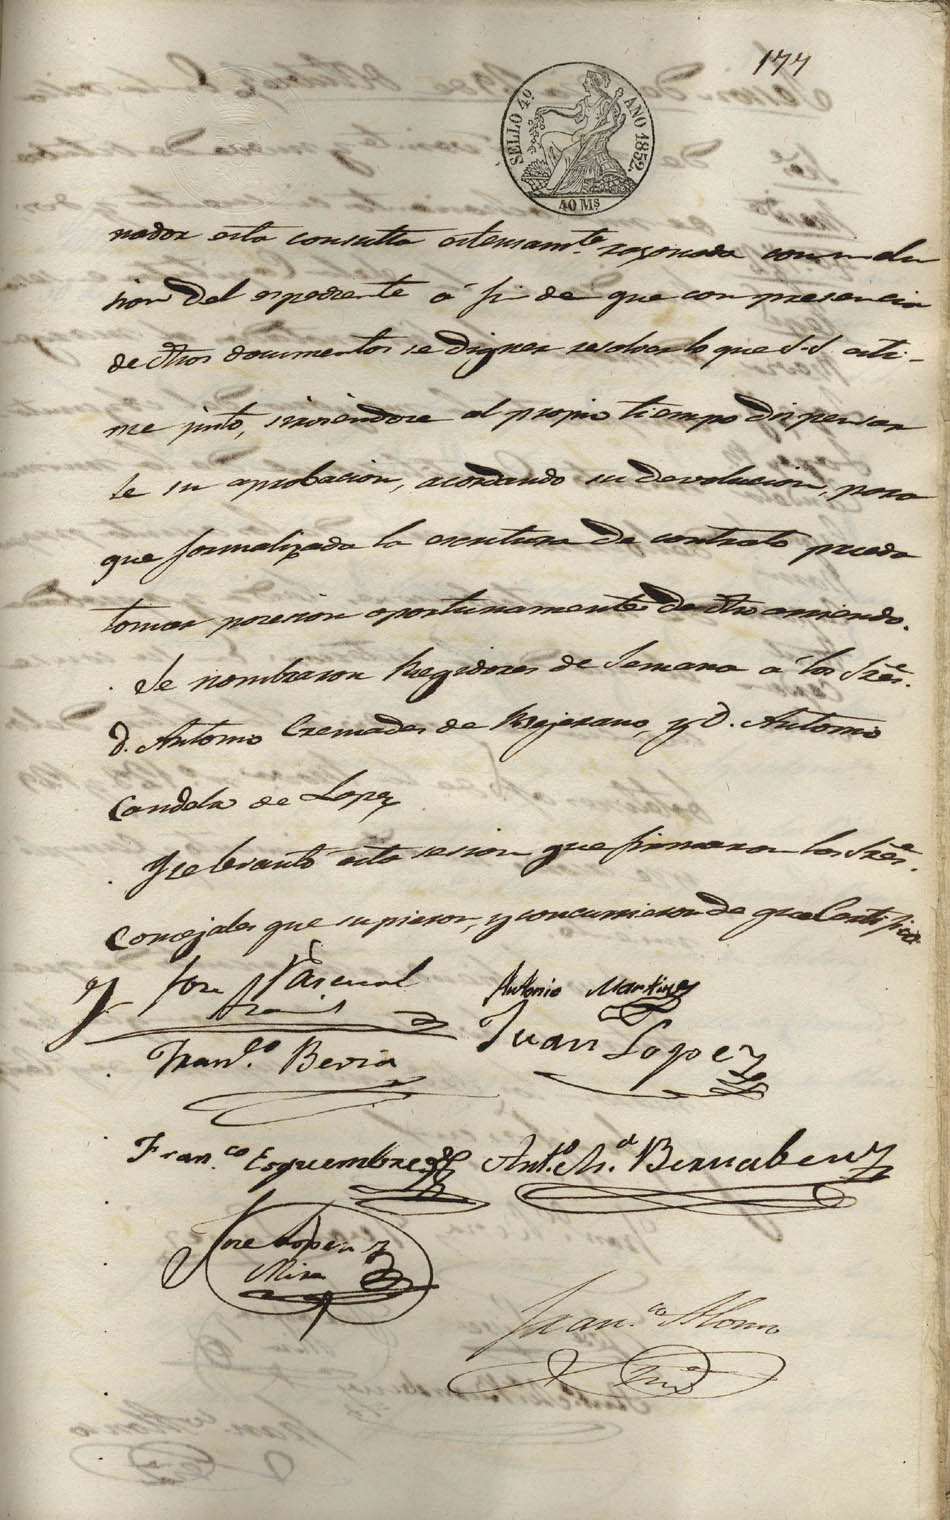 177
SELLO 4º AÑO 1852.
40 Ms
nador esta consulta estensamte. razonada con inclu
sion del espediente á fin de que con presencia
de dhos documentos se digner resolver lo que S.S. esti-
me justo, sirviendose al propio tiempo dispensar
le su aprobacion, acordando su devolucion, para
que formalizada la escritura de contrato pueda
tomar posesion oportunamente de dho arriendo.
Se nombraron Regidores de Semana á los Sres.
D. Antonio Cremades de Bejerano, y D. Antonio
Candela de Lopez
Y se lebantó esta sesion que firmaron los Sres.
Concejales que supieron, y concurrieron de que Certifico
José Pascual
Antonio Martinez
Franco. Bevia
Juan Lopez
Franco. Esquembre
Anto. Ma. Bernabeu
Jose Lopez
Mira
Franco. Alonso
Srio